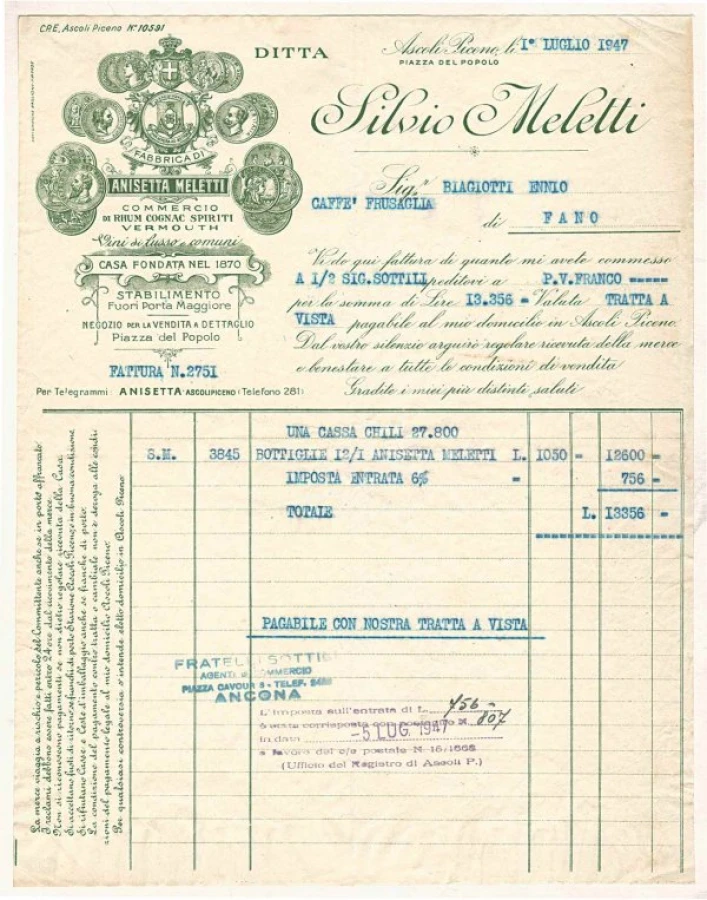 CRE, Ascoli Piceno Nº 10591
DITTA
Ascoli Piceno, li 1º LUGLIO 1947
PIAZZA DEL POPOLO
Silvio Meletti
FABBRICA DI
ANISETTA MELETTI
COMMERCIO
DI RHUM COGNAC SPIRITI
VERMOUTH
Vini di lusso e comuni
CASA FONDATA NEL 1870
STABILIMENTO
Fuori Porta Maggiore
NEGOZIO PER LA VENDITA A DETTAGLIO
Piazza del Popolo
FATTURA N.2751
Per Telegrammi: ANISETTA-ASCOLIPICENO (Telefono 281)
Sig.r BIAGIOTTI ENNIO
CAFFE' FRUSAGLIA
di FANO
Vi do qui fattura di quanto mi avete commesso
A 1/2 SIG.SOTTILI speditovi a P.V.FRANCO -----
per la somma di Lire 13.356 - Valuta TRATTA A
VISTA pagabile al mio domicilio in Ascoli Piceno.
Dal vostro silenzio arguirò regolare ricevuta della merce
e benestare a tutte le condizioni di vendita
Gradite i miei più distinti saluti
UNA CASSA CHILI 27.800
S.M. 3845 BOTTIGLIE 12/1 ANISETTA MELETTI L. 1050 - 12600 -
IMPOSTA ENTRATA 6% - 756 -
TOTALE L. 13356 -
PAGABILE CON NOSTRA TRATTA A VISTA
FRATELLI SOTTI
AGENTI COMMERCIO
PIAZZA CAVOUR 8 - TELEF.
ANCONA
L'imposta sull'entrata di L. 756-
è stata corrisposta con postagiro N. 807
in data -5 LUG. 1947
a favore del c/c postale N. 15/1668
(Ufficio del Registro di Ascoli P.)
La merce viaggia a rischio e pericolo del Committente anche se in porto affrancato
I reclami debbono essere fatti entro 24 ore dal ricevimento della merce.
Non si riconoscono pagamenti se non dietro regolare ricevuta della Casa.
Si accettano fusti di ritorno se franchi di porto Stazione Ascoli Piceno e in buona condizione
Si rifiutano Casse e Ceste d'imballaggio anche se franche di porto.
La condizione del pagamento contro tratta o cambiale non è deroga alle condi
zioni del pagamento legale al mio domicilio Ascoli Piceno.
Per qualsiasi controversia s'intende eletto domicilio in Ascoli Piceno